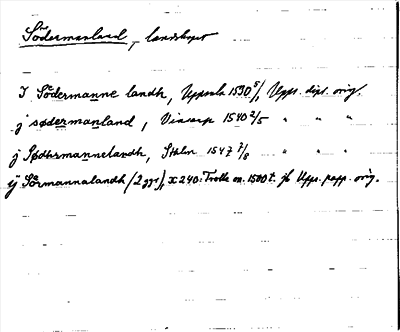 Södermanland, landskapet
J Södermanne landh, Uppsala 1530 5/1 Upps. dipl. orig.
j södermanland, 1540 2/5 " " "
j Sødhermannelandh, Sthlm 1547 7/8 " " "
ij Sörmannalandh (2 ggr), x 240. Trolle on. 1500 t. jb Upps. papp. orig.